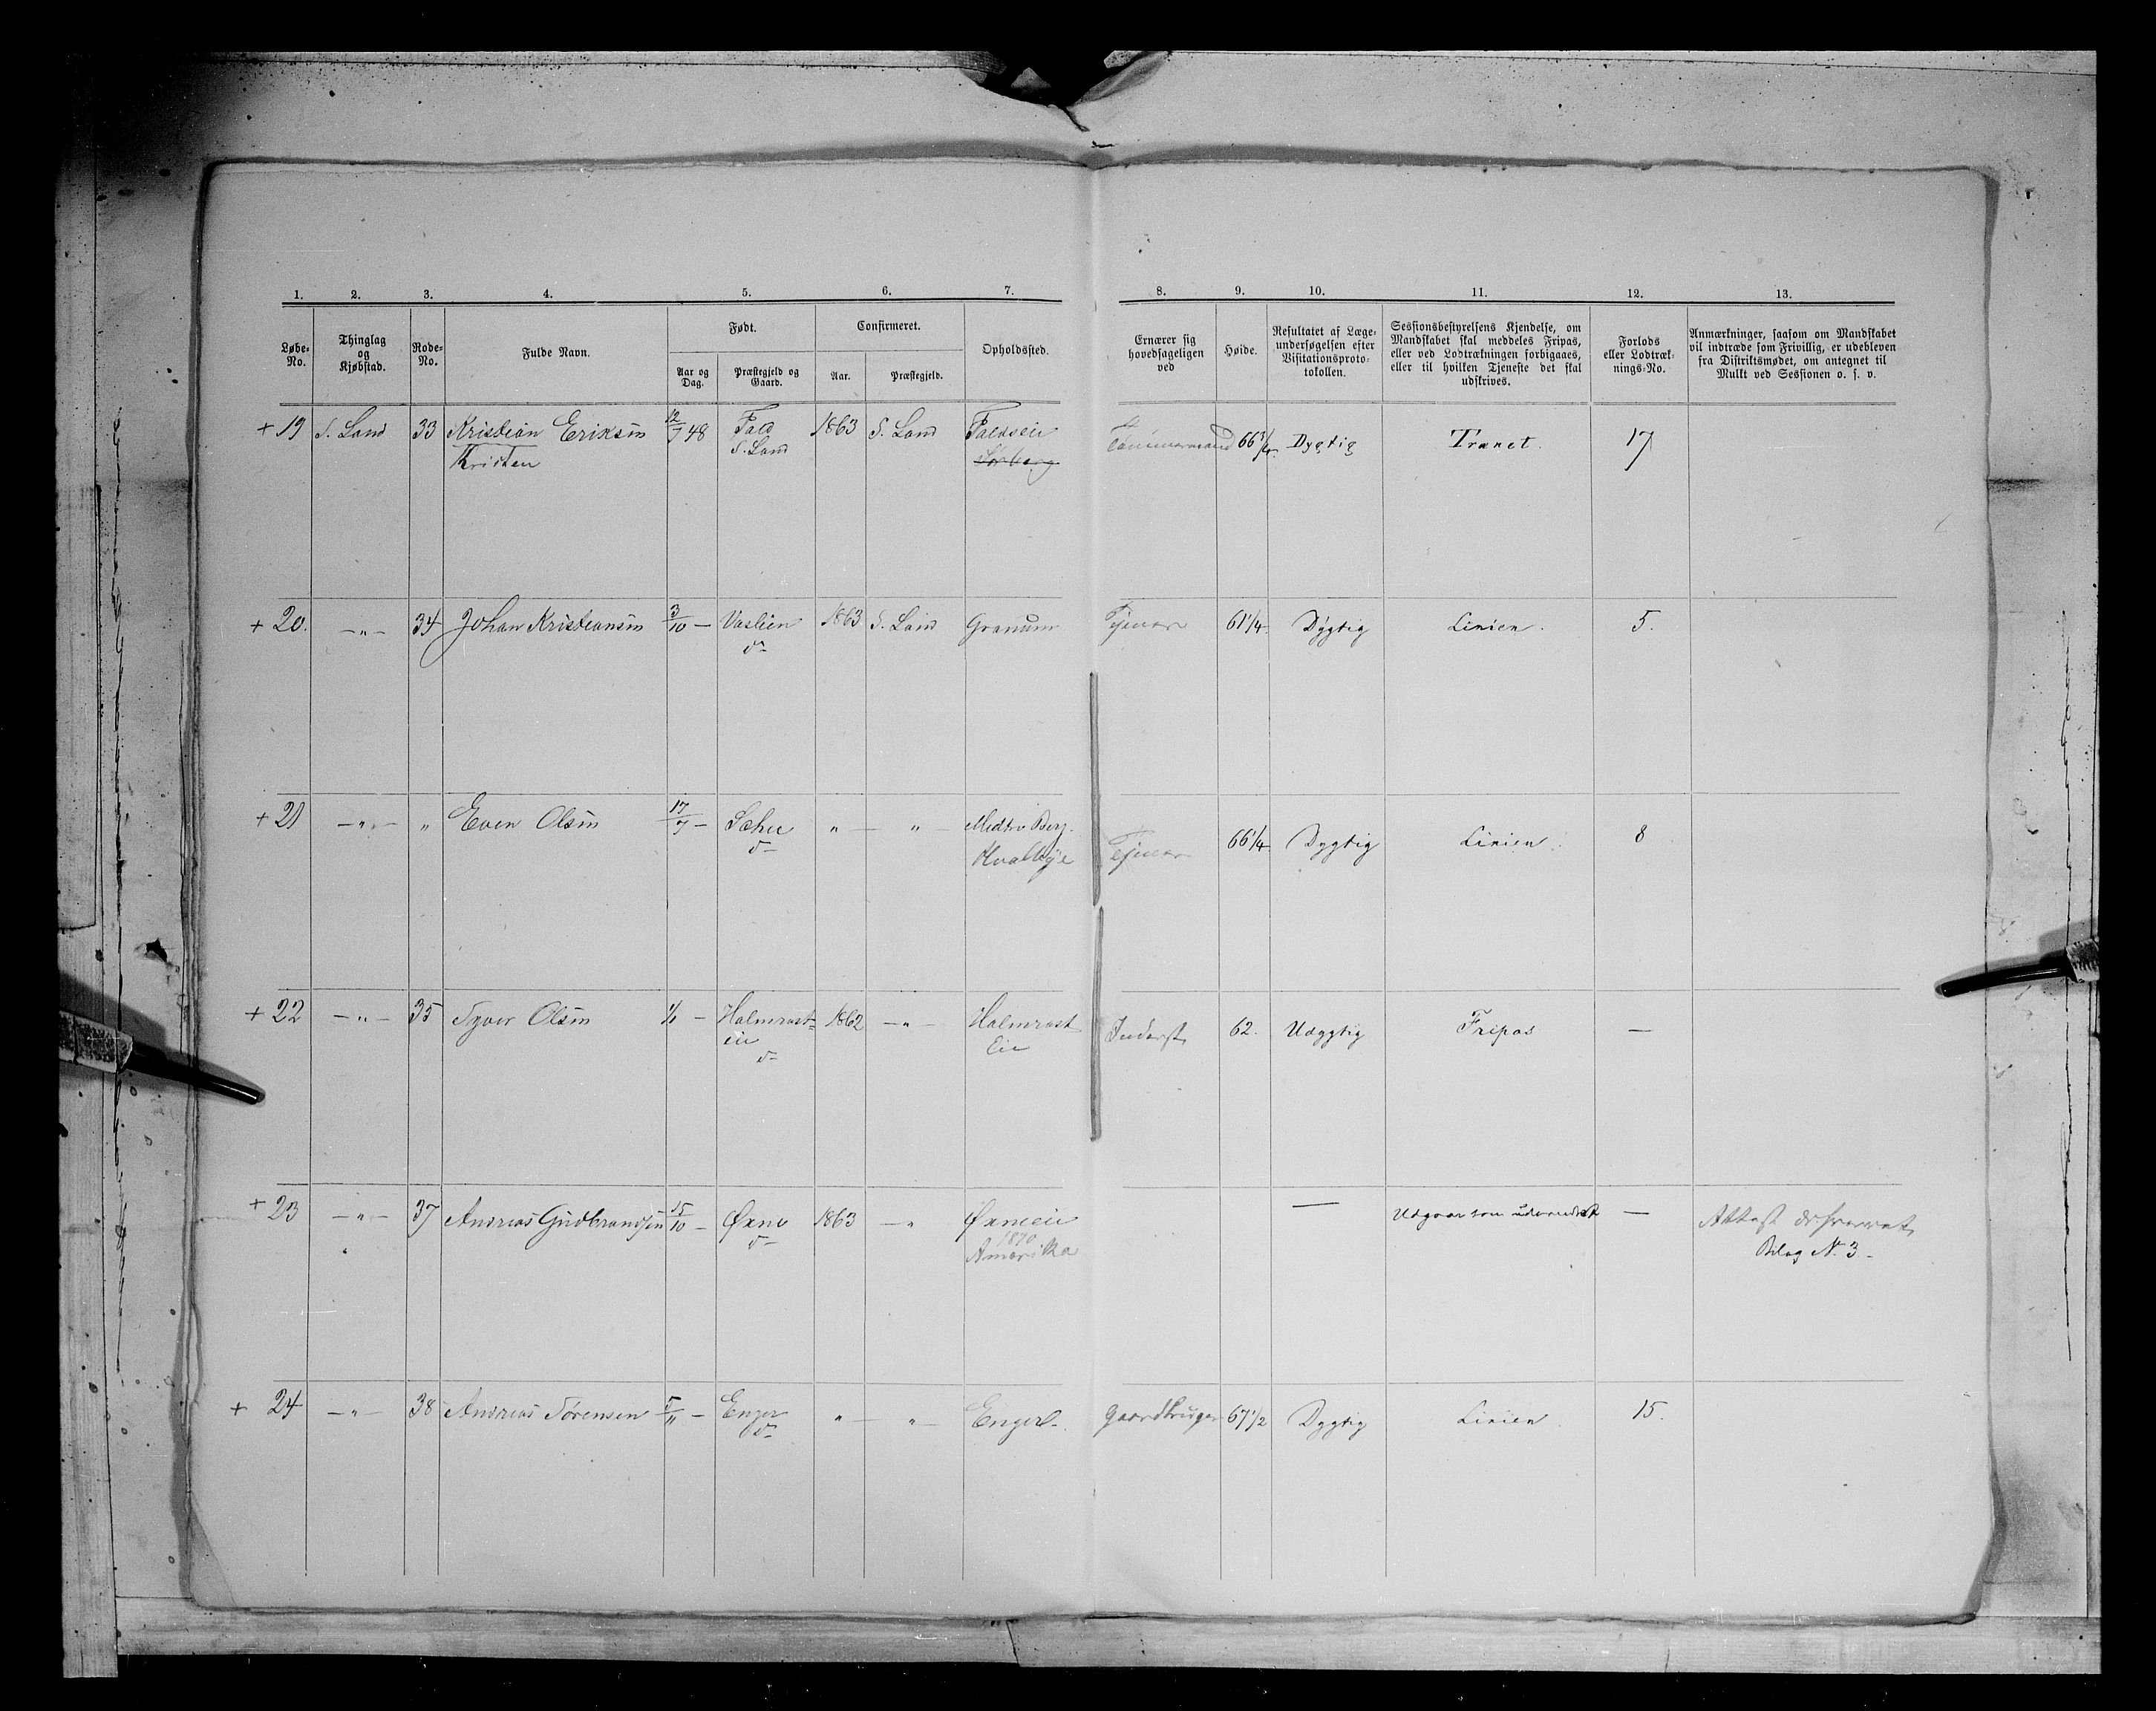 1. 2. 3. 4. 5. 6. 7. 8. 9. 10. 11. 12. 13.
Løbe-No. Thinglag og Kjøbstad. Rode-No. Fulde Navn. Født. Aar og Dag. Præstegjeld og Gaard. Confirmeret. Aar. Præstegjeld. Opholdssted. Ernærer sig hovedsageligen ved Høide. Resultatet af Læge-undersøgelsen efter Visitationsproto-tokollen. Sessionsbestyrelsens Kjendelse, om Mandskabet skal meddeles Fripas, eller ved Lodtrækningen forbigaaes, eller til hvilken Tjeneste det skal udskrives. Forlods eller Lodtræk-nings-No. Anmærkninger, saasom om Mandskabet vil indtræde som Frivillig, er udebleven fra Distriktsmødet, om antegnet til Mulkt ved Sessionen o. s. v.
+ 19 S. Land 33 Kristian Eriksen 12/7 48 Fald 1863 S. Land Faldseie Tømmermand 66 3/4 Dygtig Trænet. 17
Kristen S. Land Sørberg
+ 20. —„— 34 Johan Kristiansen 3/10 — Vaslien 1863 S. Land Granum Tjener 61 1/4. Dygtig Linien. 5.
do
+ 21 —„— „ Even Olsen 17/7 — „ — „ — Midtre Berg. 66 1/4. Dygtig Linien. 8
do Hvalbye Tjener
+ 22 —„— 35 Syver Olsen — Halmrast- 1862 —„— Halmrast Inderst 62. Udygtig Fripas —
eie Eie
do
+ 23 —„— 37 Andreas Gudbrandsen 15/10 — Øxne 1863 —„ Øxneeie — Udgaar som udvandret — Attest
do 1870 Bilag N. 3.
Amerika
+ 24 —„— 38 Andreas Sørensen 5/11 — Enger „ — „ — Enger Gaardbruger 67 1/2 Dygtig Linien. 15.
do